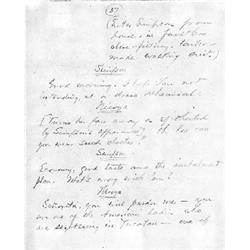 (37
(Enter Simpson from
house in
close-fitting, tailor-
made walking suit)
Simpson
Good morning. I hope I'm not
intruding, at a dress rehearsal.
Neroya
(Turns her face away as if
by Simpson's appearance) How can
you wear such clothes?
Simpson
Economy, good taste and the instalment
plan. What's wrong with 'em?
Neroya
Señorita, you will pardon me — you
are one of the American ladies who
are sightseeing in Yucatan — one of